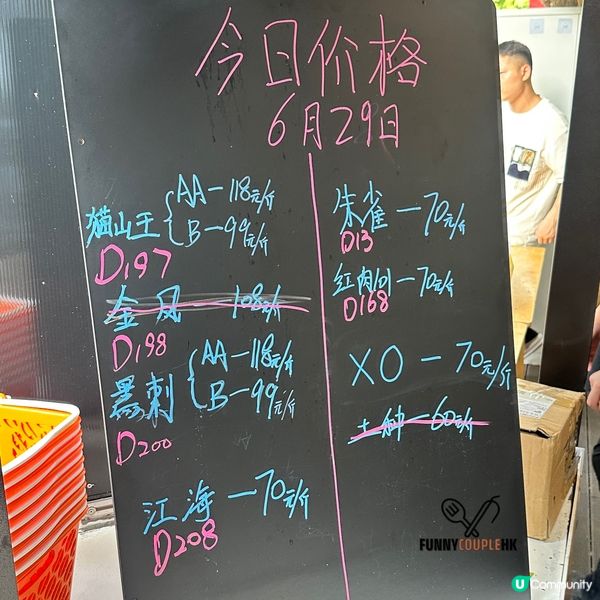 今日价格
6月29日
猫山王 { AA-118元/斤
B-99元/斤
D197
金凤 108元/斤
D198
黑刺 { AA-118元/斤
B-99元/斤
D200
江海-70元/斤
D208
朱雀-70元/斤
D13
红肉101-70元/斤
D168
XO-70元/斤
土种-60元/斤
FUNNYCOUPLEHK
U Community